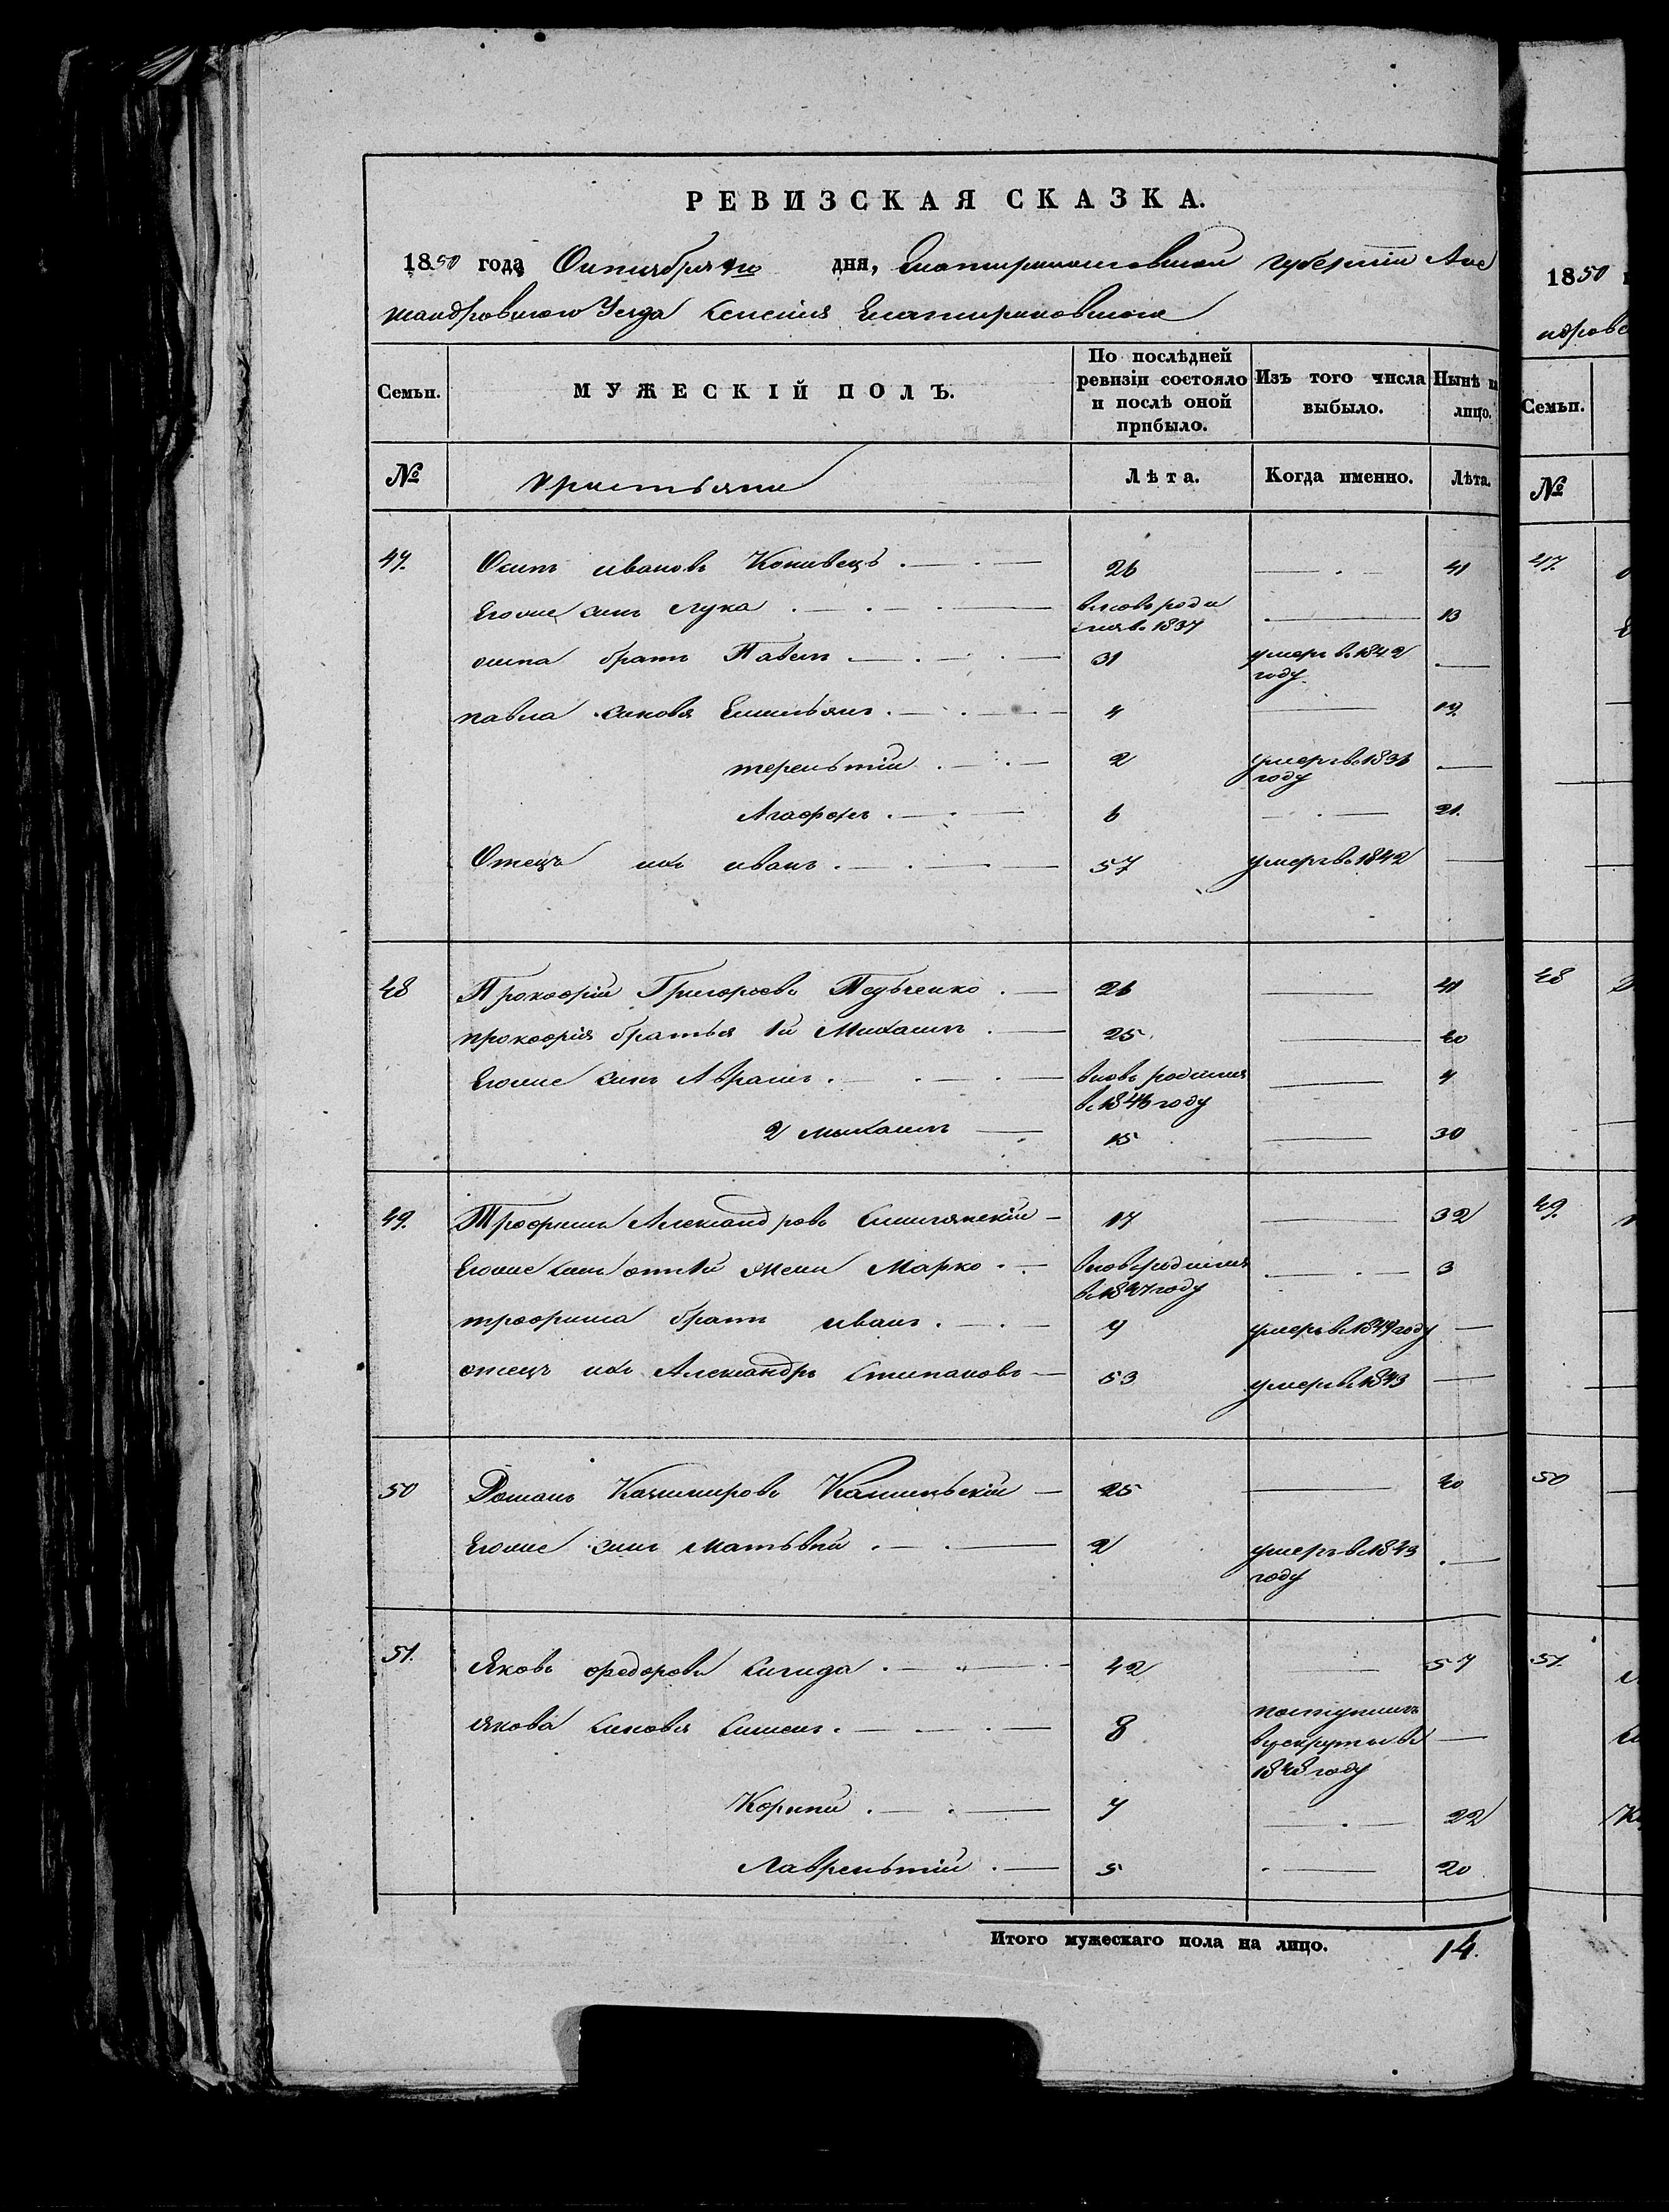 РЕВИЗСКАЯ СКАЗКА.
1850 года Октября дня, Екатеринославской губернии Алек
сандровского Уезда Селения Екатериновского
Семьи. МУЖЕСКІЙ ПОЛЪ. По послѣдней ревизіи состояло и послѣ оной прибыло. Изъ того числа выбыло. Нынѣ на лицо.
№ крестьяне Лѣта. Когда именно. Лѣта.
47. Осипъ ивановъ Коневецъ 26 41
Егоже сынъ лука вновь роди 13
лся в. 1837
осипа братъ Павелъ 31 умеръ в. 1842
году.
павла сыновя Емельянъ 4 19.
терентьй 2 умеръ в. 1836
году
Агафонъ 6 21.
Отецъ ихъ иванъ 57 умеръ в. 1842
48 Прокофій Григорьевъ 26 41
прокофія братья 1й Михаилъ 25. 40
Егоже сынъ Аврамъ вновь родился 4
в. 1846 году
2 михаилъ 15 30
49. Трофимъ Александровъ 17 32
Егоже сынъ отъ 1й жены Марко вновь родился 3
в. 1847 году
трофима братъ иванъ умеръ в. 1849 году
отецъ ихъ Александръ Степановъ 53 умеръ в. 1843
50 Романъ Казимировъ Каминьскій 25 40
Егоже сынъ матьвѣй 2 умеръ в. 1843
году
51. Яковъ федоровъ Сигида 42 57
якова сыновя Симеонъ 8 поступилъ
в рекруты в.
1848 году
Корнѣй 7 22
Лаврентьй 5 20
Итого мужескаго пола на лицо. 14.
1850
Семьи.
№
47.
48
49.
50
51.